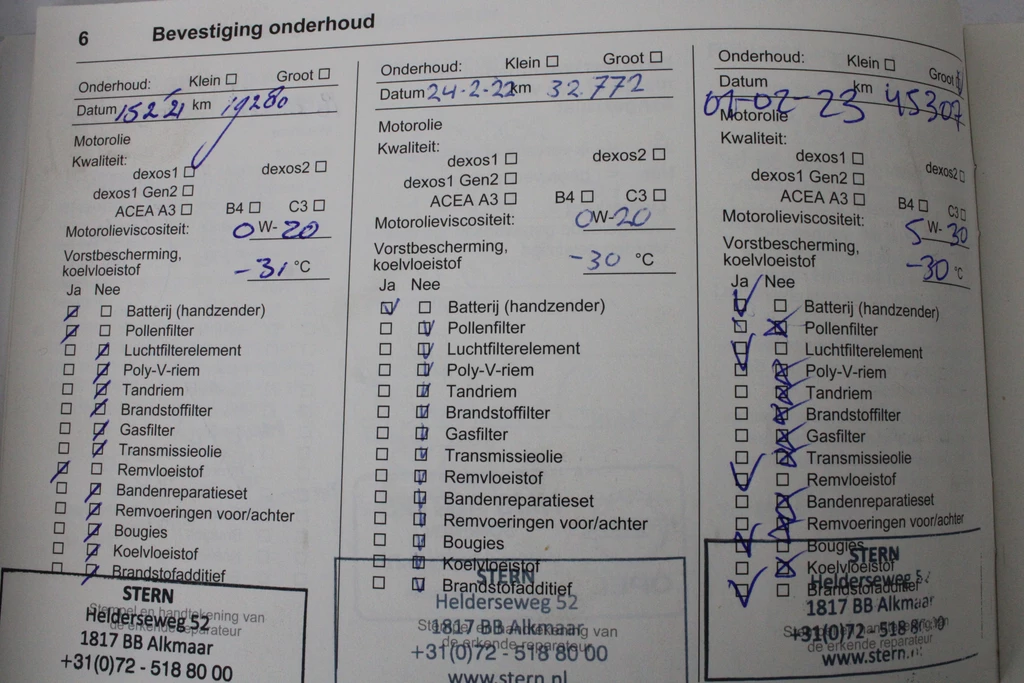 6 Bevestiging onderhoud
Onderhoud: Klein Groot
Datum 15 2 21 km 19280
Motorolie
Kwaliteit:
dexos1 dexos2
dexos1 Gen2
ACEA A3 B4 C3
Motorolieviscositeit: 0 W- 20
Vorstbescherming,
koelvloeistof -31 °C
Ja Nee
Batterij (handzender)
Pollenfilter
Luchtfilterelement
Poly-V-riem
Tandriem
Brandstoffilter
Gasfilter
Transmissieolie
Remvloeistof
Bandenreparatieset
Remvoeringen voor/achter
Bougies
Koelvloeistof
Brandstofadditief
Stempel en handtekening van
de erkende reparateur
STERN
Helderseweg 52
1817 BB Alkmaar
+31(0)72 - 518 80 00
Onderhoud: Klein Groot
Datum 24-2-22 km 32.772
Motorolie
Kwaliteit:
dexos1 dexos2
dexos1 Gen2
ACEA A3 B4 C3
Motorolieviscositeit: 0W-20
Vorstbescherming,
koelvloeistof -30 °C
Ja Nee
Batterij (handzender)
Pollenfilter
Luchtfilterelement
Poly-V-riem
Tandriem
Brandstoffilter
Gasfilter
Transmissieolie
Remvloeistof
Bandenreparatieset
Remvoeringen voor/achter
Bougies
Koelvloeistof
Brandstofadditief
Stempel en handtekening van
de erkende reparateur
STERN
Helderseweg 52
1817 BB Alkmaar
+31(0)72 - 518 80 00
www.stern.nl
Onderhoud: Klein Groot
Datum 01-02-23 km 45307
Motorolie
Kwaliteit:
dexos1 dexos2
dexos1 Gen2
ACEA A3 B4 C3
Motorolieviscositeit: 5 W- 30
Vorstbescherming,
koelvloeistof -30 °C
Ja Nee
Batterij (handzender)
Pollenfilter
Luchtfilterelement
Poly-V-riem
Tandriem
Brandstoffilter
Gasfilter
Transmissieolie
Remvloeistof
Bandenreparatieset
Remvoeringen voor/achter
Bougies
Koelvloeistof
Brandstofadditief
de erkende reparateur
STERN
Helderseweg
1817 BB Alkmaar
+31(0)72 - 518
www.stern